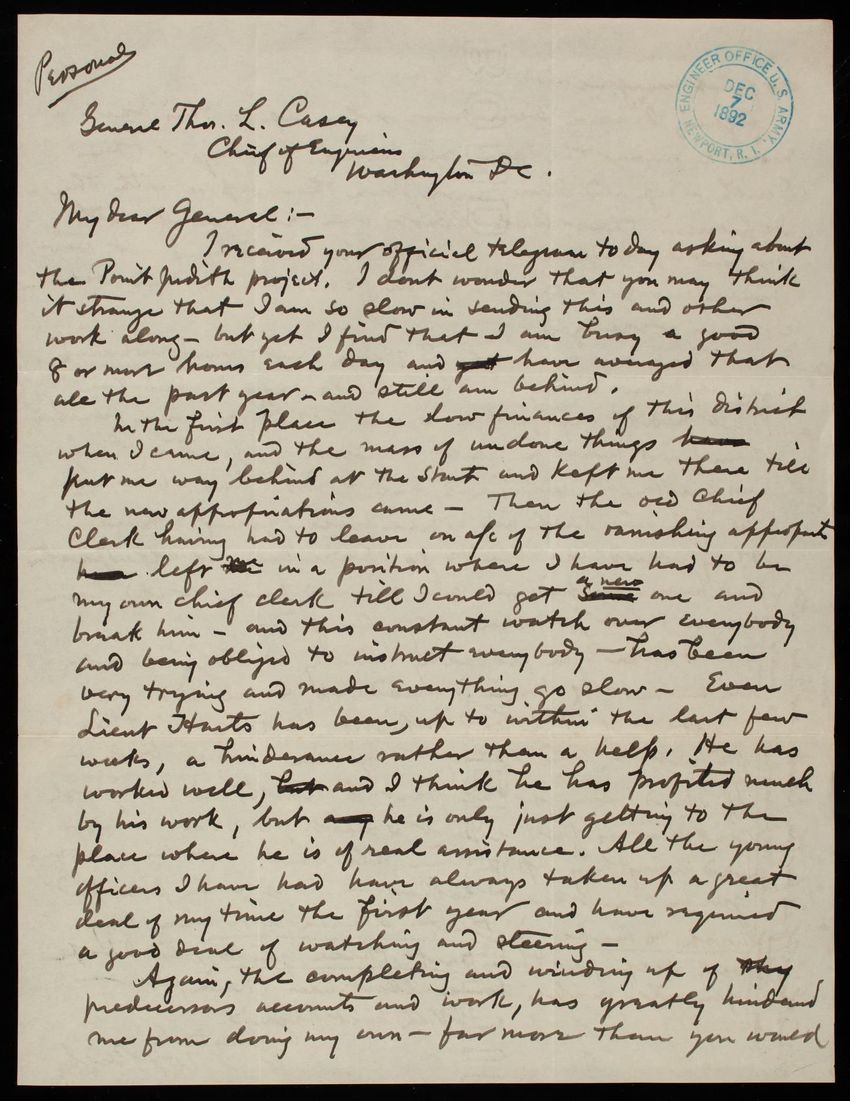 Personal
ENGINEER OFFICE U.S. ARMY,
DEC
7
1892
NEWPORT, R. I.
General Thos. L. Casey
Chief of Engineers
Washington DC.
My dear General:-
I received your official telegram today asking about
the Point Judith project. I dont wonder that you may think
it strange that I am so slow in sending this and other
work along - but yet I find that I am busy a good
8 or more hours each day and yet have averaged that
all the past year - and still am behind.
In the first place the low finances of this district
when I came, and the mass of undone things have
put me way behind at the start and kept me there till
the new appropriations came - Then the old chief
clerk having had to leave on a/c of the vanishing appropriats
have left me in a position where I have had to be
my own chief clerk till I could get some a new one and
break him - and this constant watch over everybody
and being obliged to instruct everybody - has been
very trying and made everything go slow - Even
Lieut Harts has been, up to within the last few
weeks, a hinderance rather than a help. He has
worked well, but and I think he has profited much
by his work, but he is only just getting to the
place where he is of real assistance. All the young
officers I have had have always taken up a great
deal of my time the first year and have required
a good deal of watching and steering -
Again, the completing and winding up of my
predecessors accounts and work, has greatly hindered
me from doing my own - far more than you would